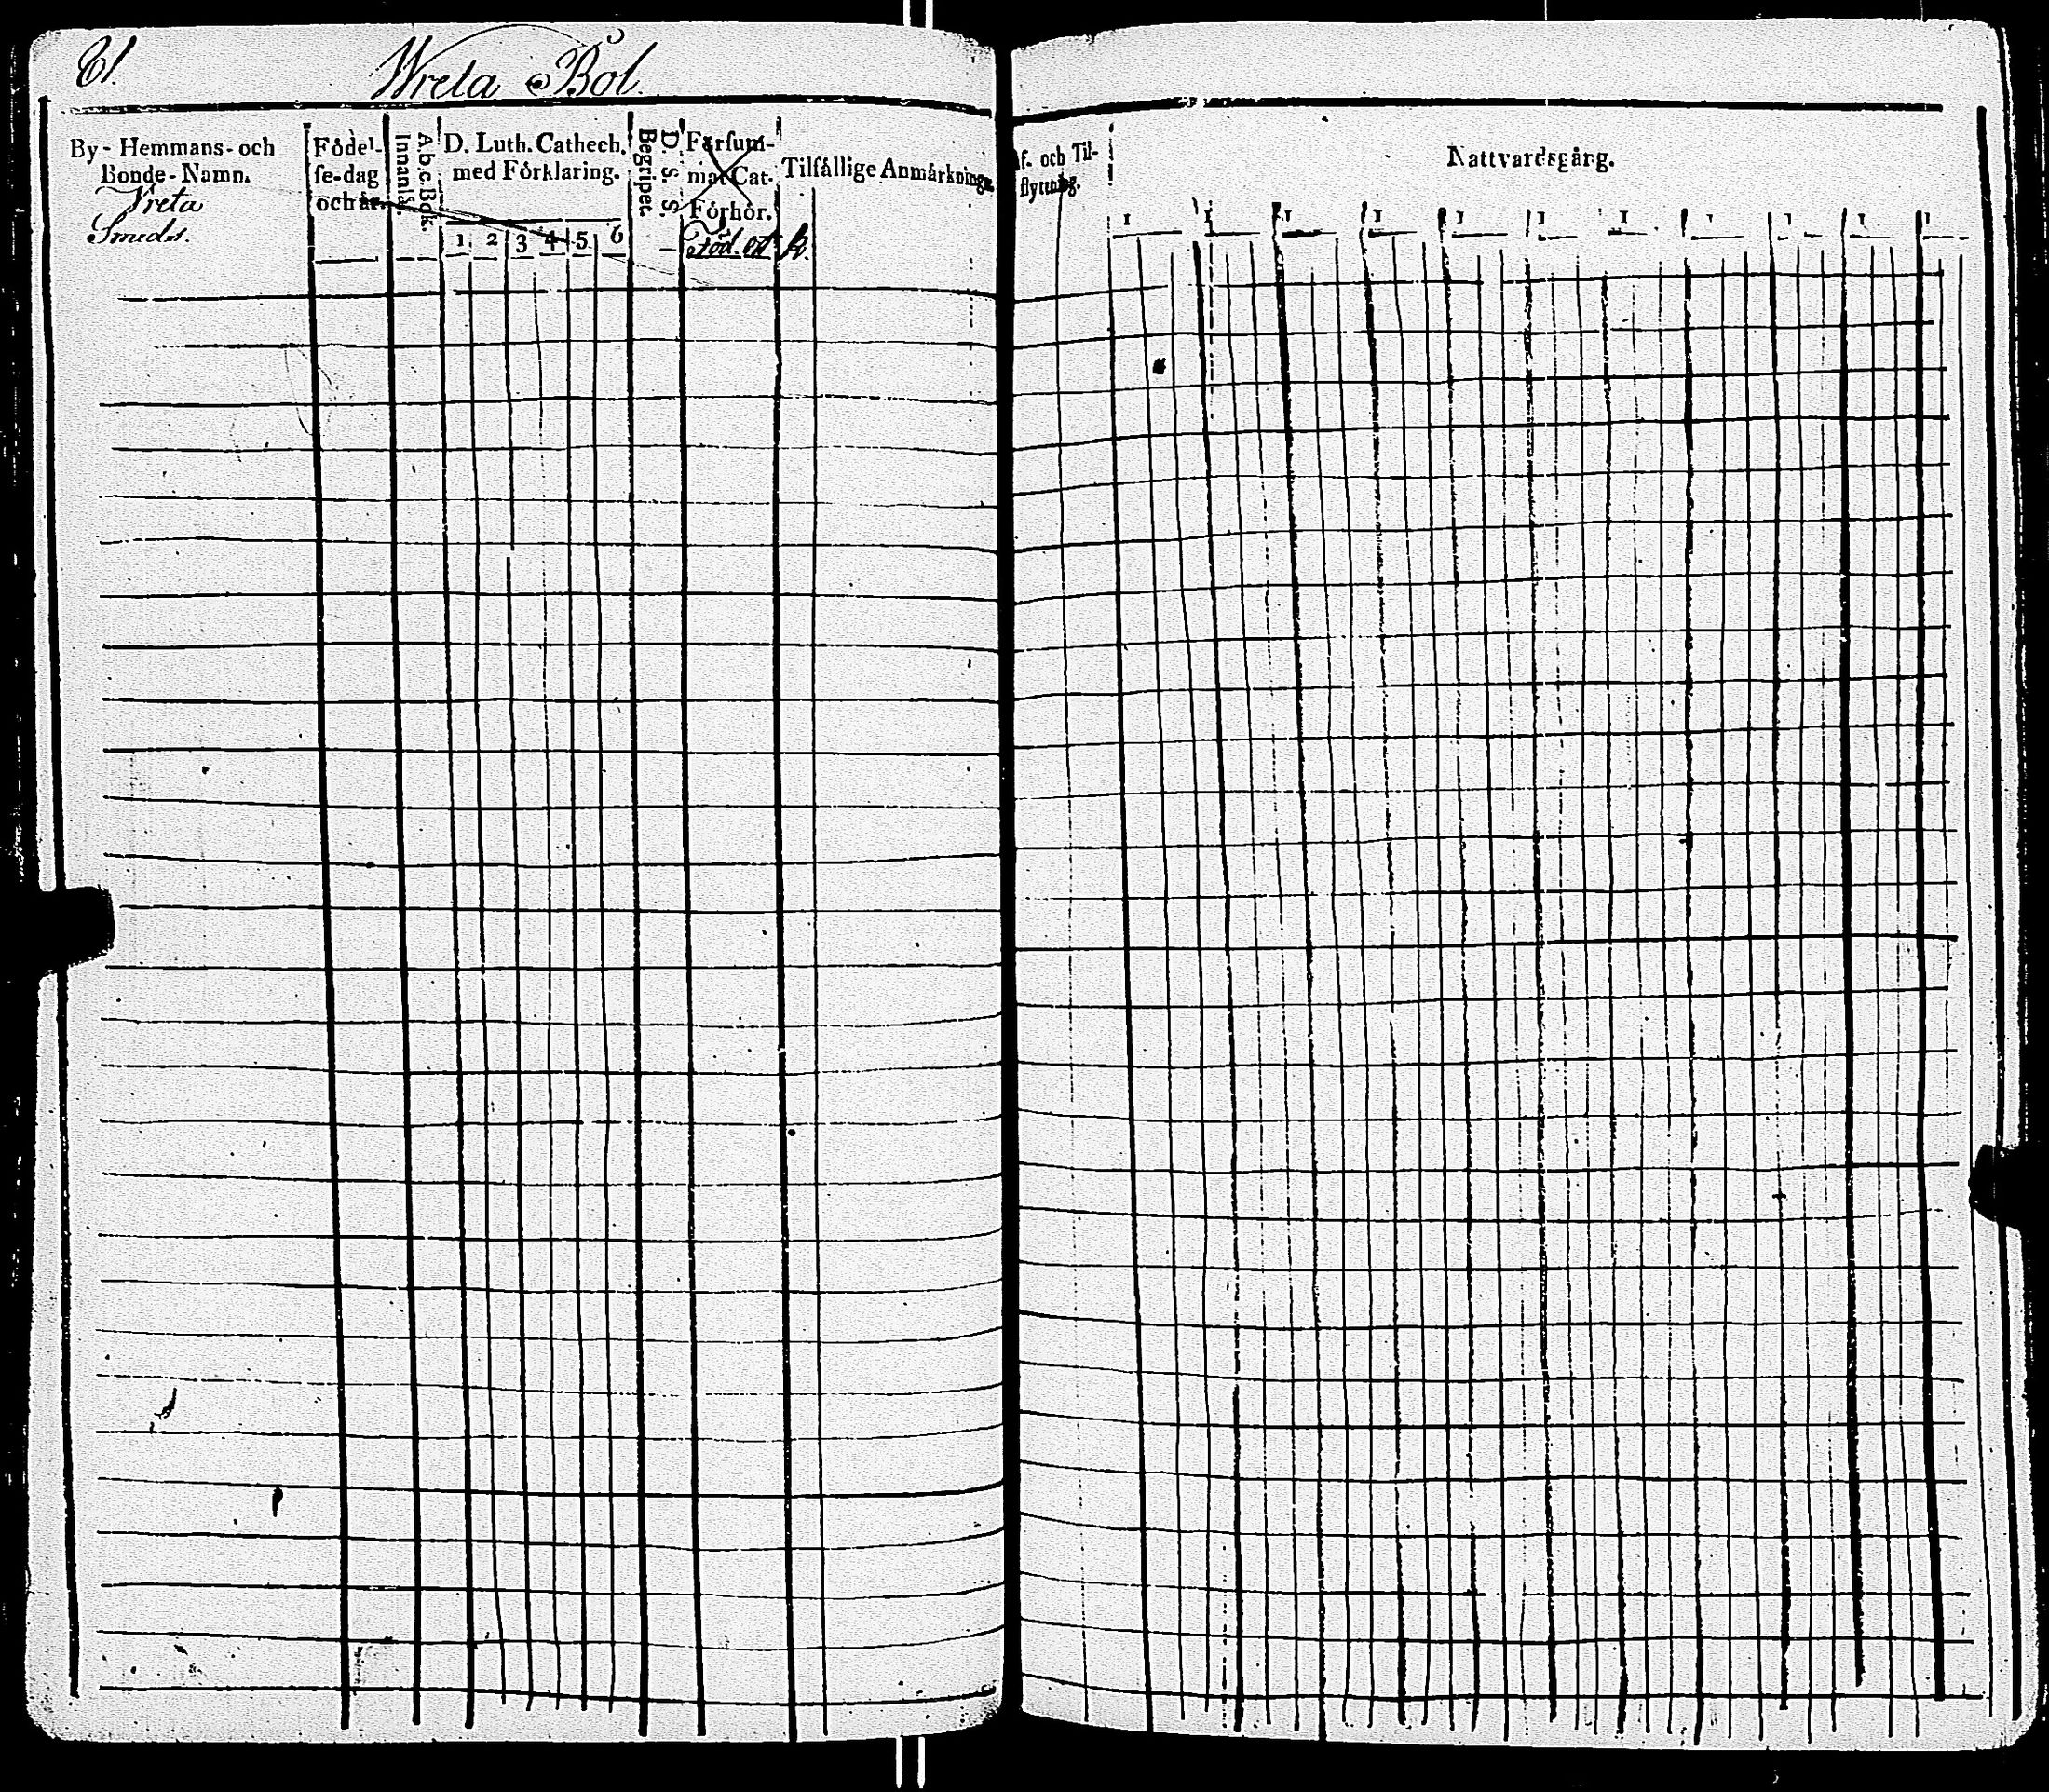 61.
Wreta Bol.
By-Hemmans-och
Bonde-Namn.
Wreta
Smeds.
Födel-
se-dag
och år.
Innanläs.
A.b.c.Bok.
D. Luth. Cathech.
med Förklaring.
1 2 3 4 5 6
Begriper.
D. S. S.
Försum-
mat Cat-
Förhör.
Tilfällige Anmärkninga
f. och Til-
flyttning.
Nattvardsgång.
1 1 1 1 1 1 1 1 1 1 1